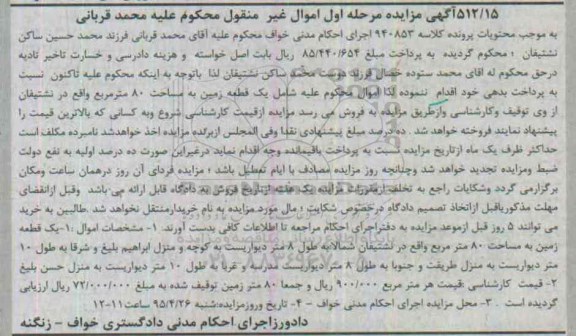 ۵۱۲/۱۵آگهی مزایده مرحله اول اموال غیر منقول محکوم علیه محمد قربانی
به موجب محتویات پرونده کلاسه ۹۴۰۸۵۳ اجرای احکام مدنی خواف محکوم علیه آقای محمد قربانی فرزند محمد حسین ساکن
نشتیفان ؛ محکوم گردیده به پرداخت مبلغ ۸۵/۴۴۰/۶۵۴ ریال بابت اصل خواسته و هزینه دادرسی و خسارت تاخیر تادیه
درحق محکوم له آقای محمد ستوده خصال فرزند دوست محمد ساکن نشتیفان لذا باتوجه به اینکه محکوم علیه تاکنون نسبت
به پرداخت بدهی خود اقدام ننموده لذا اموال محکوم علیه شامل یک قطعه زمین به مساحت ۸۰ مترمربع واقع در نشتیفان
از وی توقیف وکارشناسی وازطریق مزایده به فروش می رسد مزایده ازقیمت کارشناسی شروع وبه کسانی که بالاترین قیمت را
پیشنهاد نمایند فروخته خواهد شد . ده درصد مبلغ پیشنهادی نقدا وفی المجلس ازبرنده مزایده اخذ خواهدشد نامبرده مکلف است
حداکثر ظرف یک ماه ازتاریخ مزایده نسبت به پرداخت باقیمانده وجه اقدام نماید درغیراین صورت ده درصد اولیه به نفع دولت
ضبط ومزایده تجدید خواهد شد وچنانچه روز مزایده مصادف با ایام تعطیل باشد ؛ مزایده فردای آن روز درهمان ساعت ومکان
برگزارمی گردد وشکایات راجع به تخلف ازمقررات مزایده یک هفته ازتاریخ فروش به دادگاه قابل ارائه می باشد وقبل ازانقضای
مهلت مذکوریاقبل ازاتخاذ تصمیم دادگاه درخصوص شکایت ؛ مال مورد مزایده به نام خریدارمنتقل نخواهد شد .طالبین به خرید
می توانند ۵ روز قبل ازموعد مزایده به دفتراجرای احکام مراجعه تا اطلاعات کافی بدست آورند. ۱- مشخصات اموال :۱-یک قطعه
زمین به مساحت ۸۰ متر مربع واقع در نشتیفان شمالابه طول ۸ متر دیواریست به کوچه و منزل ابراهیم بلیغ و شرقا به طول ۱۰
متر دیواریست به منزل طریقت و جنوبا به طول ۸ متر دیواریست مدرسه و غربا به طول ۱۰ متر دیواریست به منزل حسن بلیغ
۲- قیمت کارشناسی :قیمت هر متر مربع ۹۰۰/۰۰۰ ریال و جمعا ۸۰ متر زمین توقیف شده به مبلغ ۷۲/۰۰۰/۰۰۰ ریال ارزیابی
گردیده است . ۳- محل مزایده اجرای احکام مدنی خواف - ۴- تاریخ وروزمزایده:شنبه ۹۵/۴/۲۶ ساعت۱۱-۱۲
دادورزاجرای احکام مدنی دادگستری خواف - زنگنه